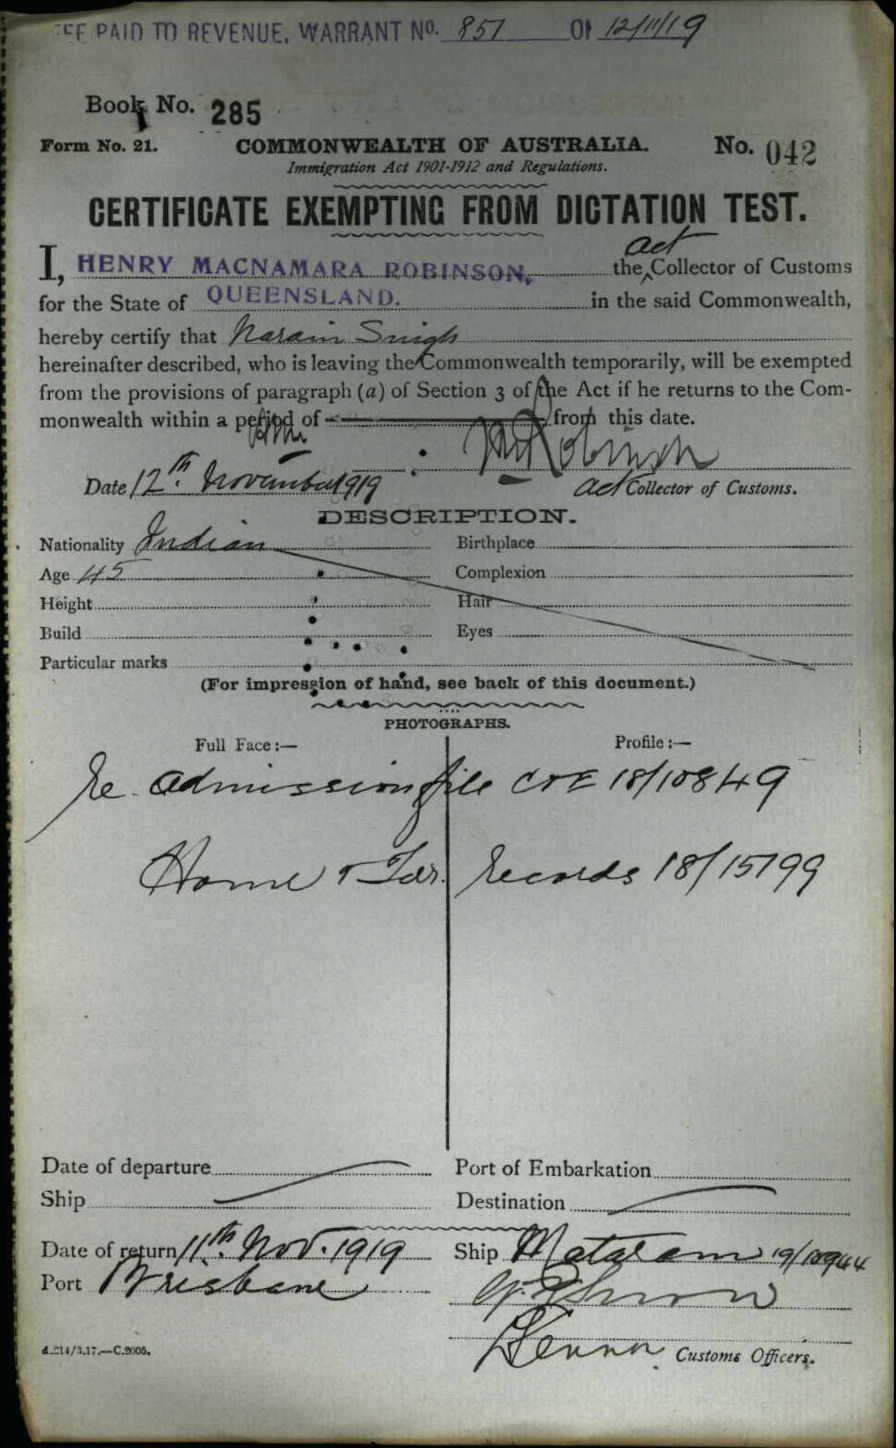 FEE PAID TO REVENUE, WARRANT No. 851 OF 12/11/19
Book No. 285
Form No. 21. COMMONWEALTH OF AUSTRALIA. No. 042
Immigration Act 1901-1912 and Regulations.
CERTIFICATE EXEMPTING FROM DICTATION TEST.
I, HENRY MACNAMARA ROBINSON, the Act Collector of Customs
for the State of QUEENSLAND. in the said Commonwealth,
hereby certify that Narain Singh
hereinafter described, who is leaving the Commonwealth temporarily, will be exempted
from the provisions of paragraph (a) of Section 3 of the Act if he returns to the Com-
monwealth within a period of from this date.
HMRobinson
Date 12th. November 1919 Act Collector of Customs.
DESCRIPTION.
Nationality Indian Birthplace
Age 45 Complexion
Height Hair
Build Eyes
Particular marks
(For impression of hand, see back of this document.)
PHOTOGRAPHS.
Full Face:— Profile:—
Re Admission file C&E 18/10849
Home & Ter. Records 18/15799
Date of departure Port of Embarkation
Ship Destination
Date of return 11th. Nov. 1919 Ship Mataram 19/10944
Port Brisbane
A.214/3.17.—C.2005. Customs Officers.